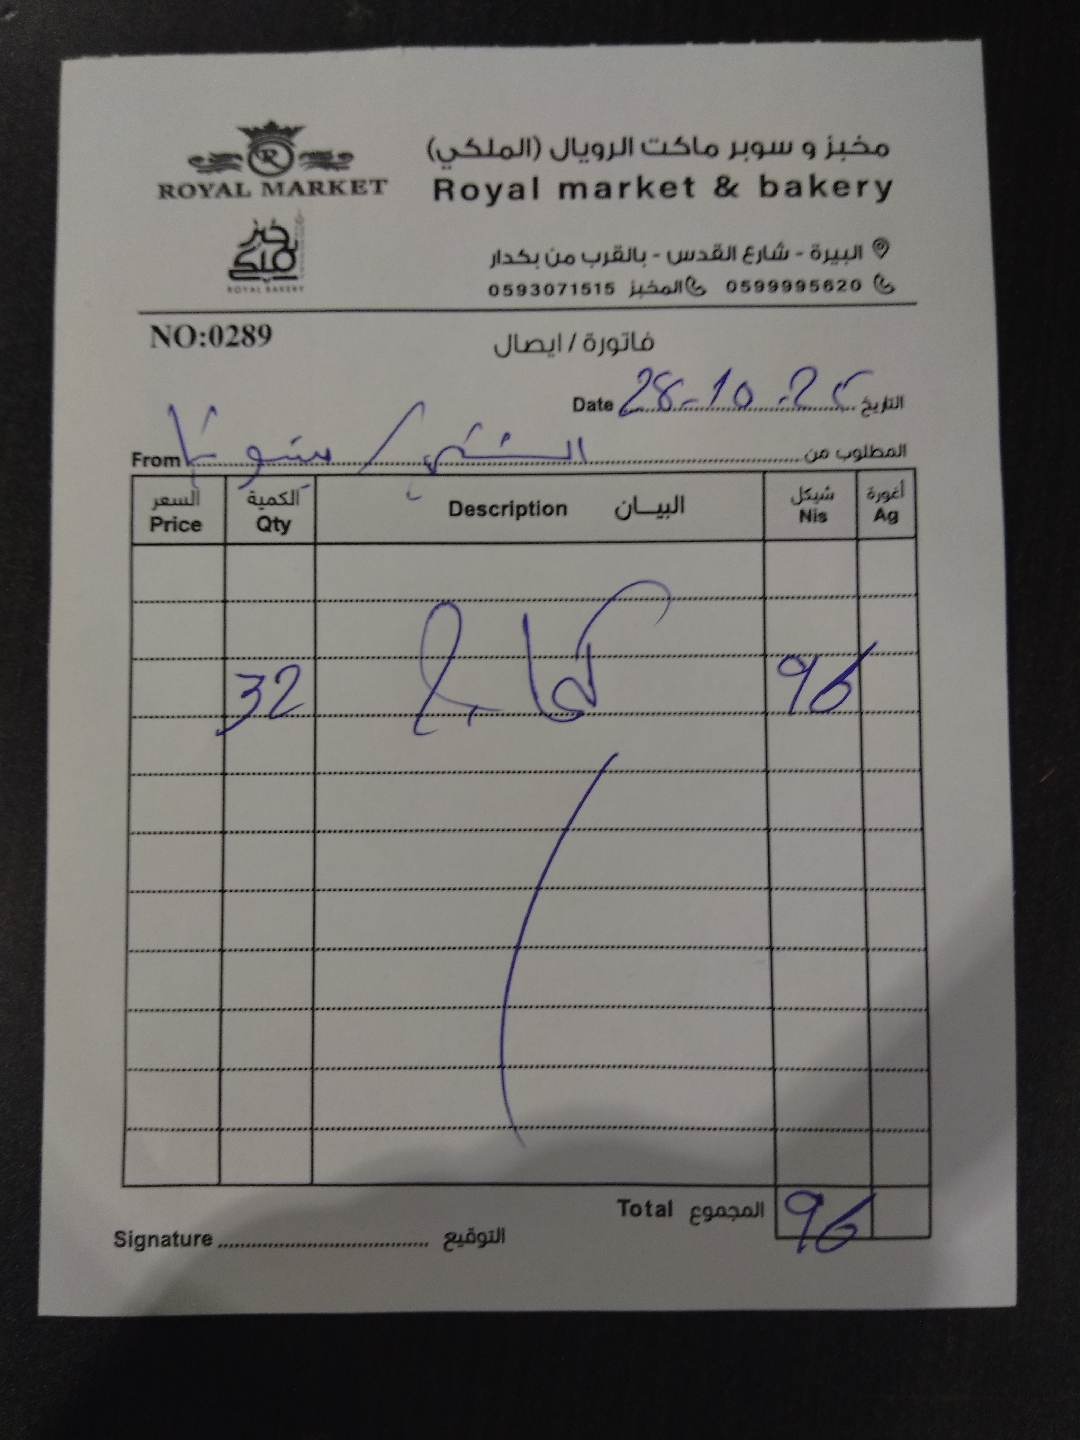 ROYAL MARKET
مخبز و سوبر ماكت الرويال (الملكي)
Royal market & bakery
خبز ملكي
ROYAL BAKERY
البيرة - شارع القدس - بالقرب من بكدار
0599995620 المخبز 0593071515
NO:0289
فاتورة / ايصال
Date 28-10-25 التاريخ
From / المطلوب من
السعر الكمية البيان شيكل أغورة
Price Qty Description Nis Ag
32 96
Total المجموع 96
Signature التوقيع